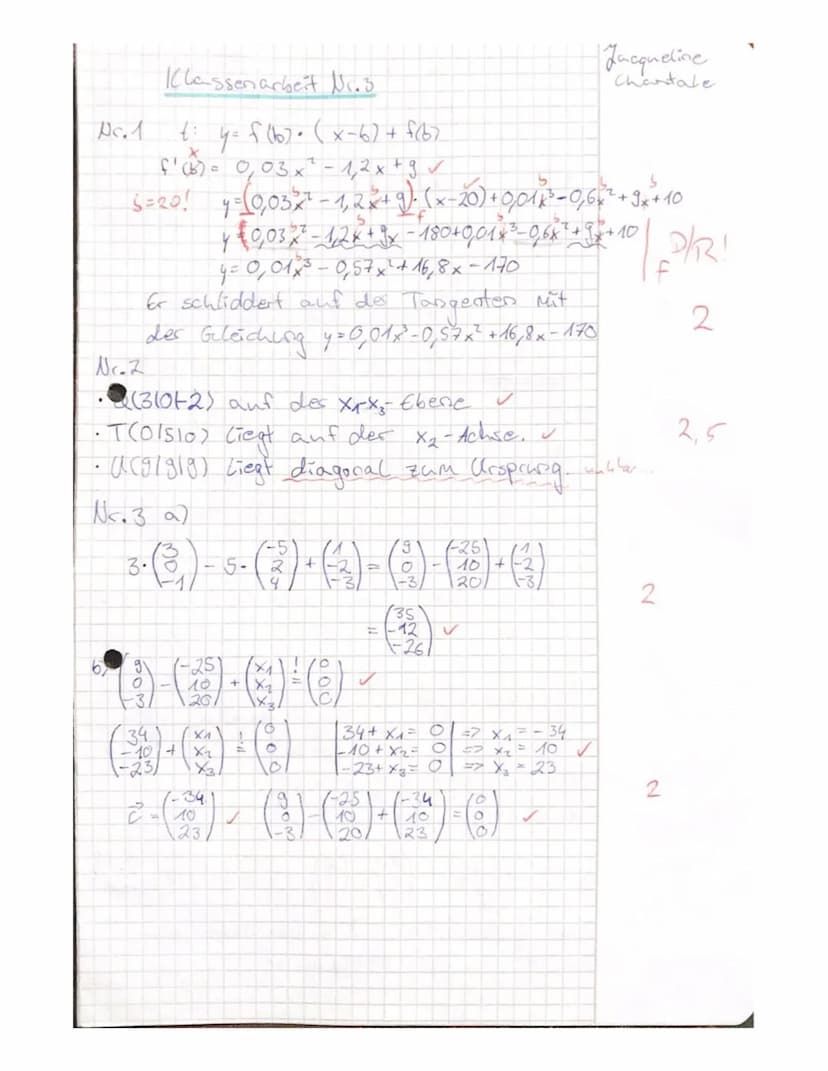 Jacqueline
Chantale
Klassenarbeit Nr. 3
Nr. 1 t: y = f'(b) · (x-b) + f(b)
x
f'(b) = 0,03x² - 1,2x + 9 ✓
b=20! y = (0,03x² - 1,2x + 9) · (x-20) + 0,01x³ - 0,6x² + 9x + 10
y = 0,03x² - 1,2x + 9x - 180 + 0,01x³ - 0,6x² + 9x + 10
f D/R!
y = 0,01x³ - 0,57x² + 16,8x - 170
Er schliddert auf der Tangenten mit
2
der Gleichung y = 0,01x³ - 0,57x² + 16,8x - 170
Nr. 2
· Q(3|0|-2) auf der x₁-x₃-Ebene ✓
· T(0|5|0) liegt auf der x₂-Achse. ✓
2,5
· U(9|9|9) liegt diagonal zum Ursprung.
Nr. 3 a)
3 · (3 0 -1) - 5 · (-5 2 4) + (1 -2 -3) = (9 0 -3) - (-25 10 20) + (1 -2 -3)
2
= (35 -12 -26) ✓
b) (9 0 -3) - (-25 10 20) + (x₁ x₂ x₃) != (0 0 0) ✓
(34 -10 -23) + (x₁ x₂ x₃) != (0 0 0)
34 + x₁ = 0 => x₁ = -34
-10 + x₂ = 0 => x₂ = 10 ✓
-23 + x₃ = 0 => x₃ = 23
2
c = (-34 10 23) ✓ (9 0 -3) - (-25 10 20) + (-34 10 23) = (0 0 0) ✓